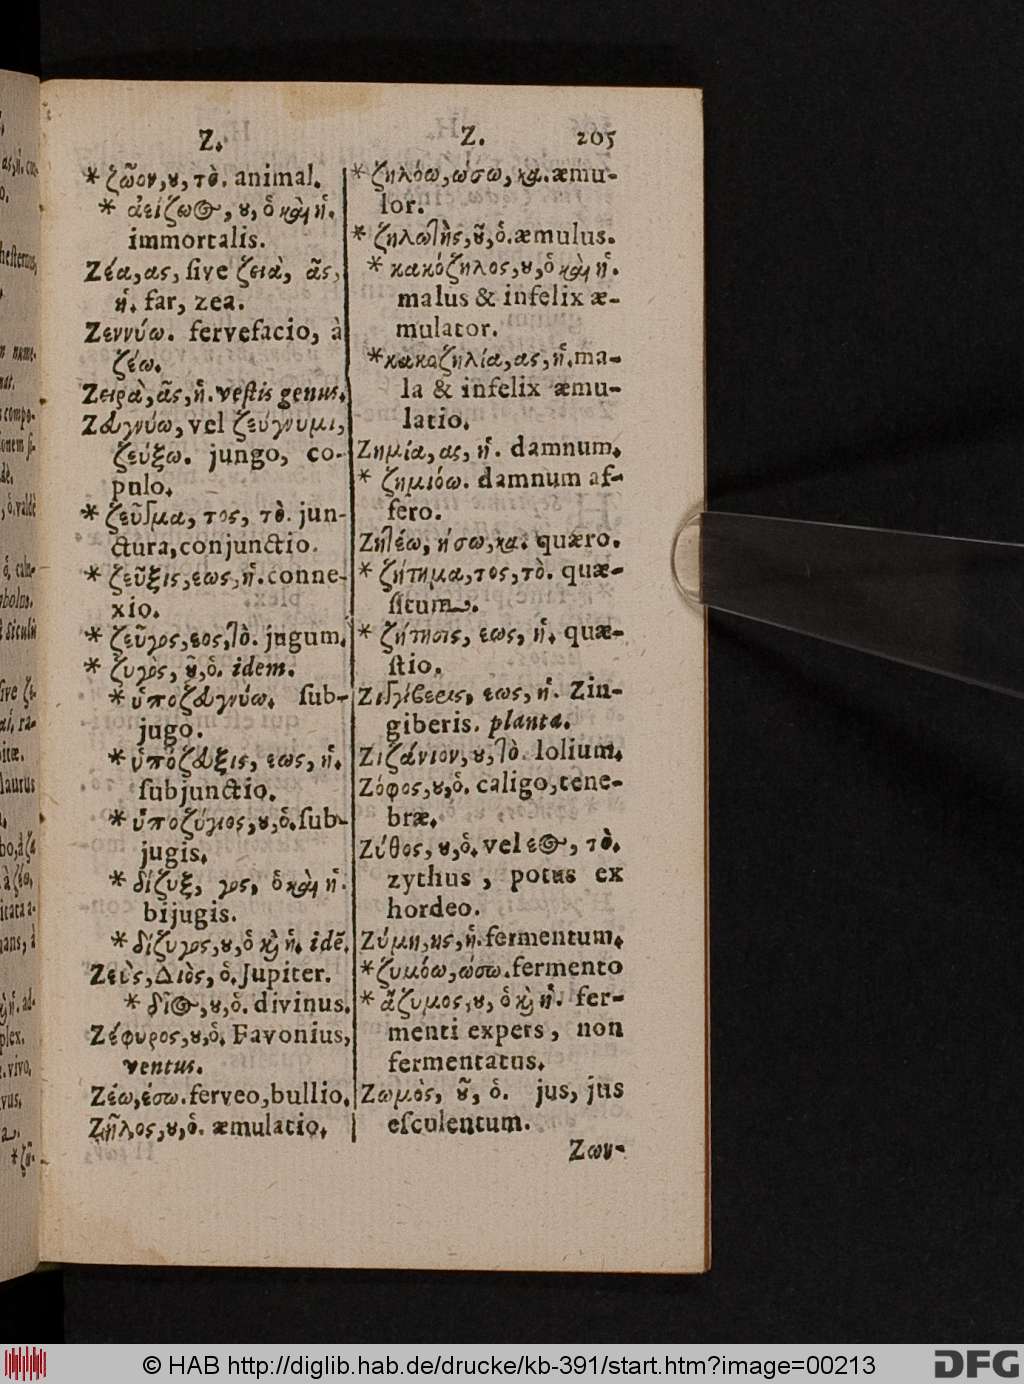 Z.
* ζῶον, ου, τὸ. animal.
* ἀείζωος, ου, ὁ καὶ ἡ.
immortalis.
Ζέα, ας, ſive ζειὰ, ᾶς,
ἡ. far, zea.
Ζεννύω. fervefacio, à
ζέω.
Ζειρὰ, ᾶς, ἡ. veſtis genus.
Ζευγνύω, vel ζεύγνυμι,
ζεύξω. jungo, co-
pulo.
* ζεῦγμα, τος, τὸ. jun-
ctura, conjunctio.
* ζεῦξις, εως, ἡ. conne-
xio.
* ζεῦγος, εος, τὸ. jugum.
* ζυγὸς, οῦ, ὁ. idem.
* ὑποζευγνύω. ſub-
jugo.
* ὑπόζευξις, εως, ἡ.
ſubjunctio.
* ὑποζύγιος, ου, ὁ. ſub-
jugis.
* δίζυξ, γος, ὁ καὶ ἡ.
bijugis.
* δίζυγος, ου, ὁ καὶ ἡ. idē.
Ζεὺς, Διὸς, ὁ. Jupiter.
* δῖος, ου, ὁ. divinus.
Ζέφυρος, ου, ὁ. Favonius,
ventus.
Ζέω, έσω. ferveo, bullio.
Ζῆλος, ου, ὁ. æmulatio.
Z. 205
* ζηλόω, ώσω, κα. æmu-
lor.
* ζηλωτὴς, οῦ, ὁ. æmulus.
* κακόζηλος, ου, ὁ καὶ ἡ.
malus & infelix æ-
mulator.
* κακοζηλία, ας, ἡ. ma-
la & infelix æmu-
latio.
Ζημία, ας, ἡ. damnum.
* ζημιόω. damnum af-
fero.
Ζητέω, ήσω, κα. quæro.
* ζήτημα, τος, τὸ. quæ-
ſitum.
* ζήτησις, εως, ἡ. quæ-
ſtio.
Ζιγγίβερις, εως, ἡ. Zin-
giberis. planta.
Ζιζάνιον, ου, τὸ. lolium.
Ζόφος, ου, ὁ. caligo, tene-
bræ.
Ζύθος, ου, ὁ. vel εος, τὸ.
zythus, potus ex
hordeo.
Ζύμη, ης, ἡ. fermentum.
* ζυμόω, ώσω. fermento
* ἄζυμος, ου, ὁ καὶ ἡ. fer-
menti expers, non
fermentatus.
Ζωμὸς, οῦ, ὁ. jus, jus
eſculentum.
Ζων-
© HAB http://diglib.hab.de/drucke/kb-391/start.htm?image=00213
DFG